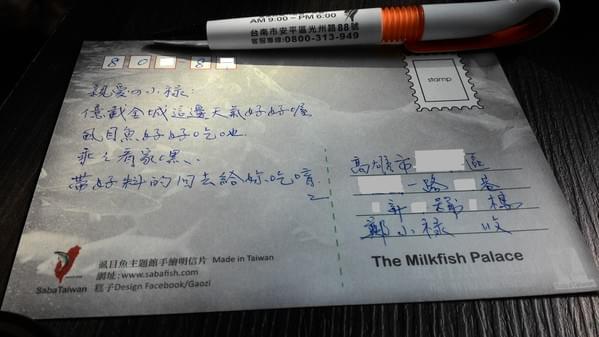 AM 9:00 ~ PM 6:00
台南市安平區光州路88號
客服專線:0800-313-949
8 0 8
stamp
親愛の小祿:
億載金城這邊天氣好好喔
虱目魚好好吃吔
乖乖看家嘿、
帶好料的回去給妳吃唷
高雄市 區
一路 巷
號 樓
鄭小祿 收
The Milkfish Palace
虱目魚主題館手繪明信片 Made in Taiwan
網址:www.sabafish.com
糕子Design Facebook/Gaozi
SabaTaiwan